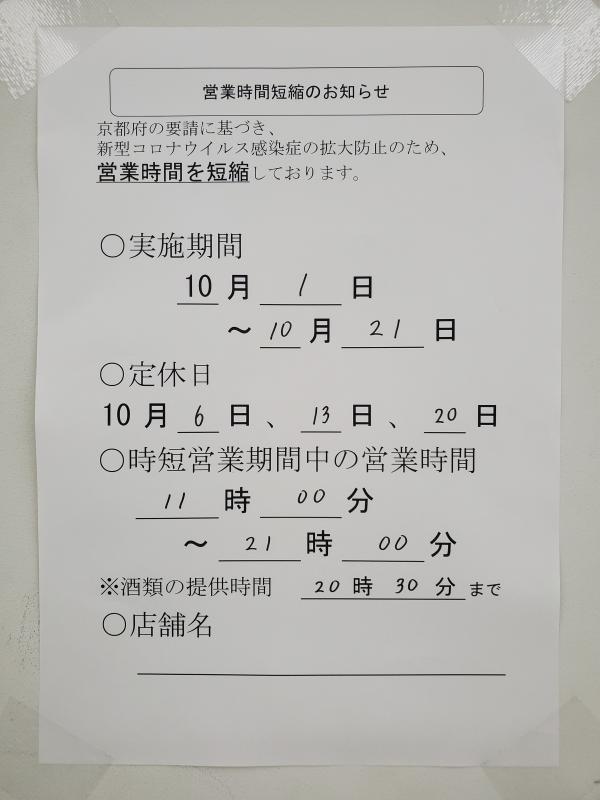 営業時間短縮のお知らせ
京都府の要請に基づき、
新型コロナウイルス感染症の拡大防止のため、
営業時間を短縮しております。
○実施期間
10 月 1 日
～ 10 月 21 日
○定休日
10 月 6 日 、 13 日 、 20 日
○時短営業期間中の営業時間
11 時 00 分
～ 21 時 00 分
※酒類の提供時間 20 時 30 分 まで
○店舗名